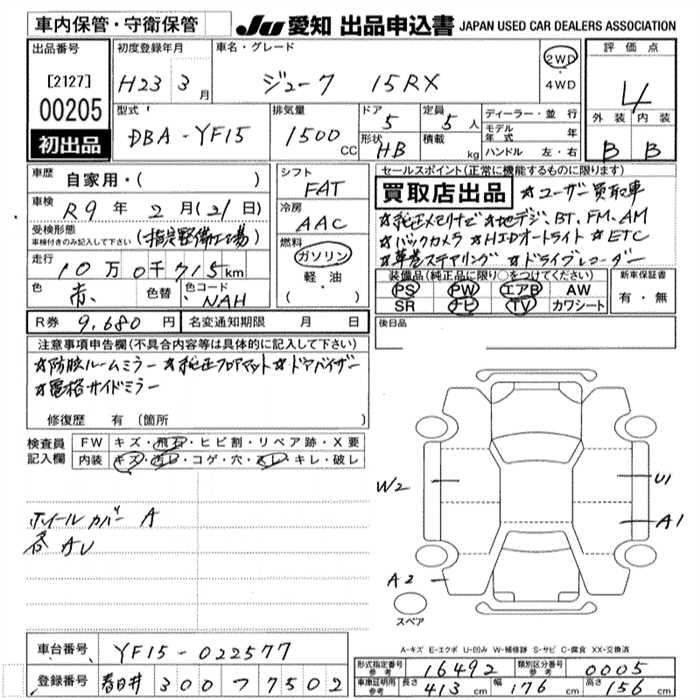 車内保管・守衛保管
JU 愛知 出品申込書 JAPAN USED CAR DEALERS ASSOCIATION
出品番号
[2127]
00205
初出品
初度登録年月
H23 3月
車名・グレード
ジューク 15RX
2WD
・4WD
評価点
4
外装 内装
B B
型式
DBA-YF15
排気量
1500 CC
ドア
5
形状
HB
定員
5人
積載
kg
ディーラー・並行
モデル年式 年
ハンドル 左・右
車歴
自家用・( )
車検
R9年2月(21日)
受検形態
車検付きのみ記入して下さい
(指定整備工場)
走行
10万0千715km
色
赤
色替
色コード
NAH
シフト
FAT
冷房
AAC
燃料
ガソリン
軽油
( )
セールスポイント(正常に機能するものに限ります)
買取店出品 ☆ユーザー買取車
☆純正メモリナビ ☆地デジ、BT、FM、AM
☆バックカメラ ☆HIDオートライト ☆ETC
☆革巻ステアリング ☆ドライブレコーダー
装備品(純正品に限り○をつけてください)
PS PW エアB AW
SR ナビ TV カワシート
新車保証書
有・無
R券 9,680円
名変通知期限 月 日
後日品
注意事項申告欄(不具合内容等は具体的に記入して下さい)
☆防眩ルームミラー ☆純正フロアマット ☆ドアバイザー
☆電格サイドミラー
修復歴 有(箇所 )
検査員記入欄
FW キズ・飛石・ヒビ割・リペア跡・X要
内装 キズ・汚レ・コゲ・穴・スレ・キレ・破レ
ホイールカバー A
各 AU
W2
U1
A1
A2
スペア
A-キズ E-エクボ U-凹み W-補修跡 S-サビ C-腐食 XX-交換済
車台番号 YF15-022577
登録番号 春日井 300 フ 7502
形式指定番号参考 16492
類別区分番号参考 0005
車庫証明用参考
長さ 413cm 幅 176cm 高さ 156cm